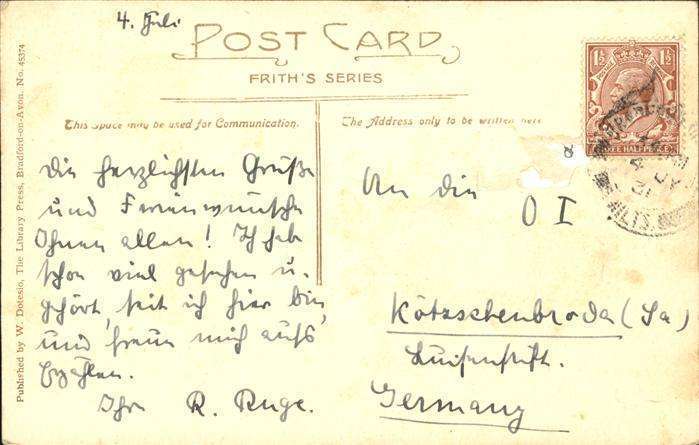 4. Juli
POST CARD
FRITH'S SERIES
This space may be used for Communication.
The Address only to be written here
Die herzlichsten Grüße
und Ferienwünsche
Ihnen allen! Ich habe
schon viel gesehen u.
gehört, seit ich hier bin,
und freue mich aufs
Erzählen.
Ihre R. Ruge.
An die
O I
Kötzschenbroda (Sa)
Luisenstift.
Germany
1½
1½
THREE HALFPENCE
4 JY
31
WILTS
Published by W. Dotesio, The Library Press, Bradford-on-Avon. No. 45374